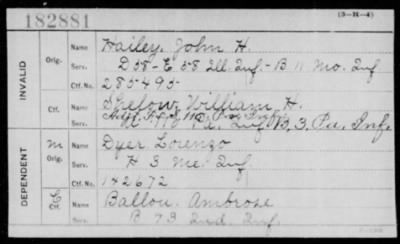 182881
(3-H-4)
INVALID
Orig. Name Hailey, John H.
Serv. D 58 - E 58 Ill. Inf. - B 11 Mo. Inf
Ctf. No. 285495
Ctf. Name Shelow, William H.
Serv. B, 3, Pa, Inf.
DEPENDENT
m Orig. Name Dyer Lorenzo
Serv. H 3 Me. Inf
Ctf. No. 142672
Name Ballou, Ambrose
Serv. B 73 Ind. Inf.